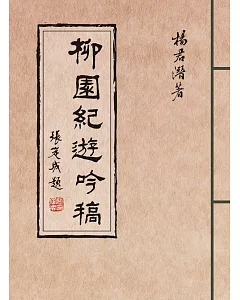 楊君潛著
柳園紀遊吟稿
張定成題